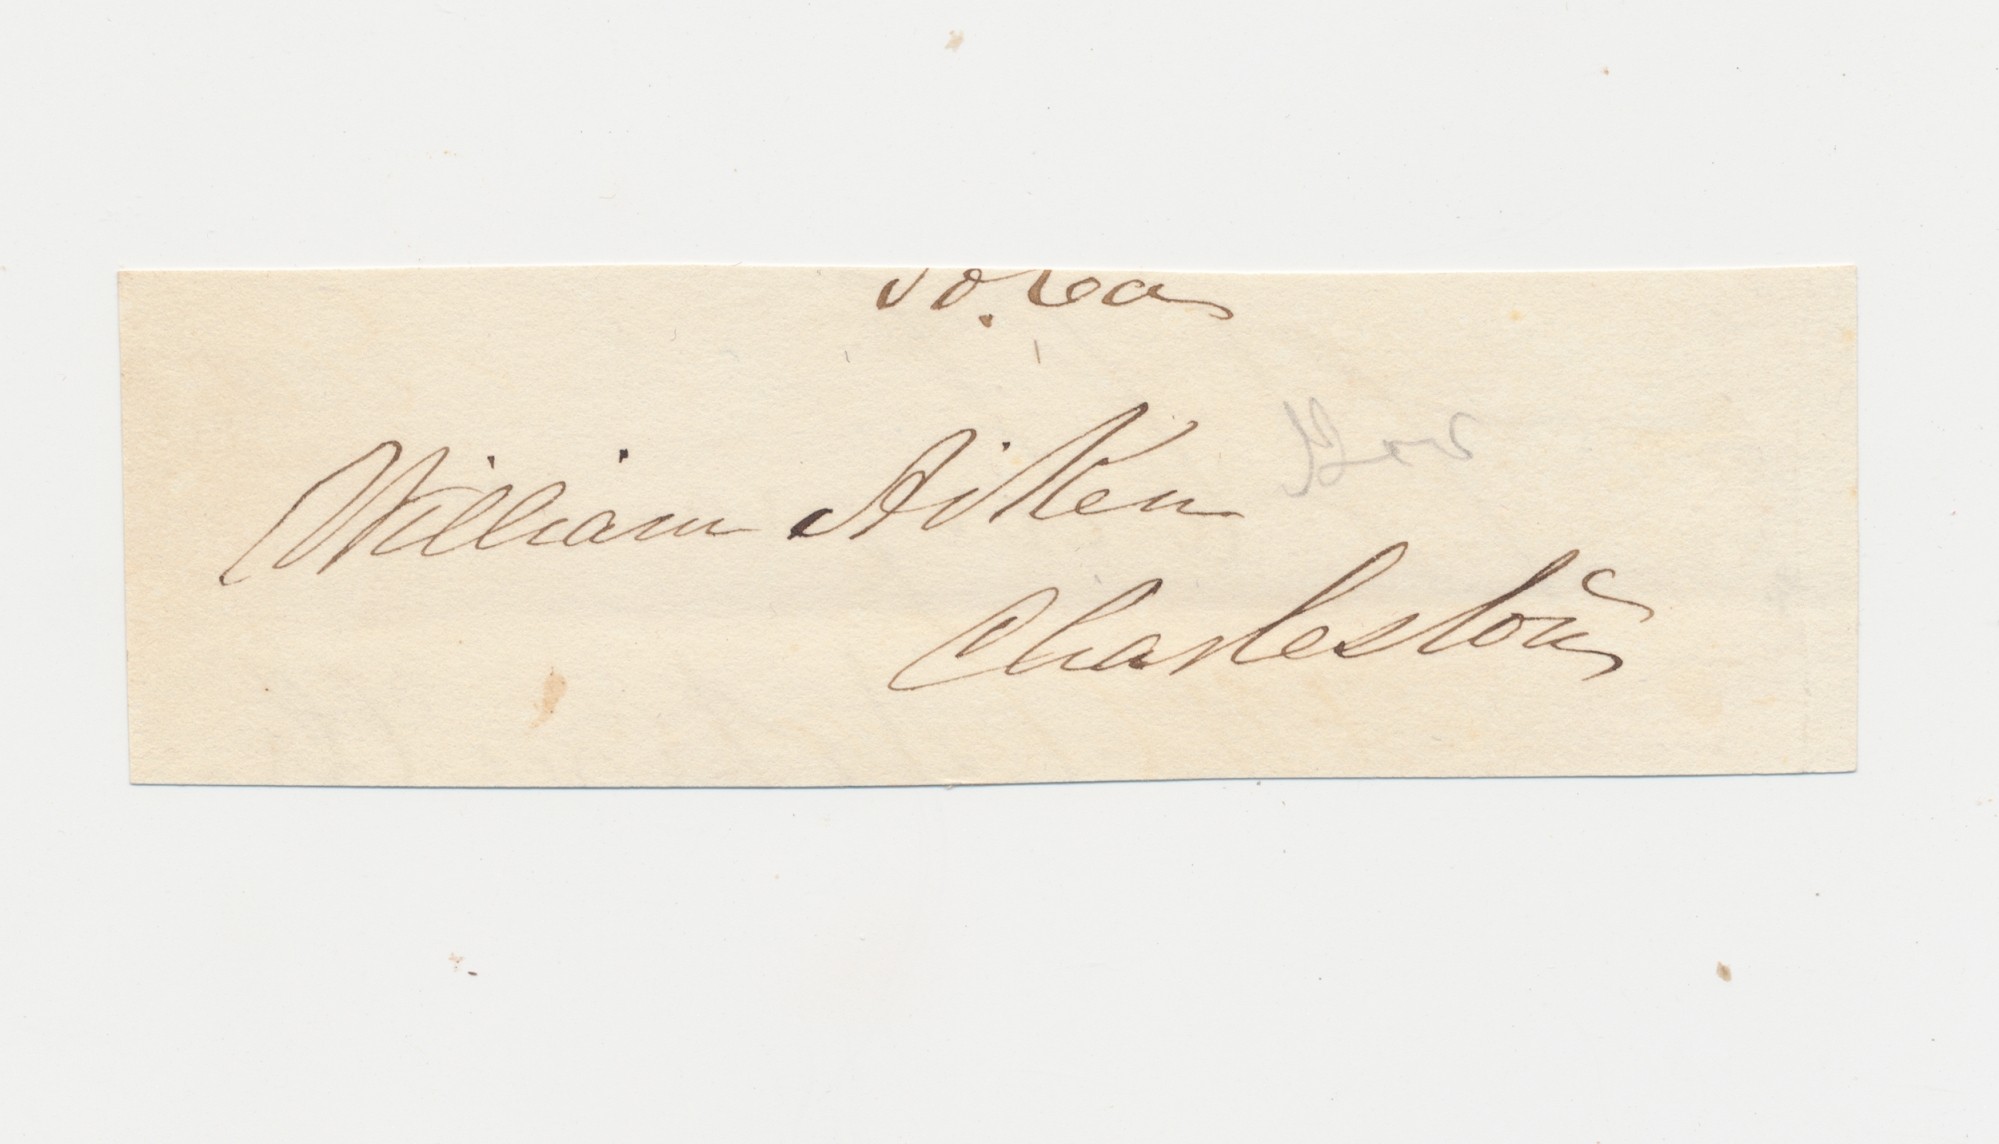 William Aiken Gov
Charleston